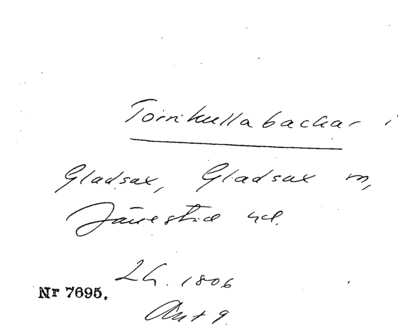 Törnkullabackar i
Gladsax, Gladsax sn,
Järrestad hd.
LH. 1806
Nr 7695.
Akt 9.